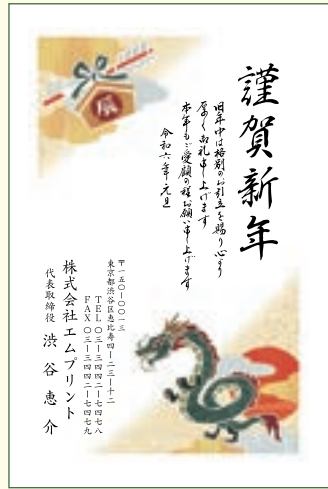 謹賀新年
旧年中は格別のお引立を賜り心より
厚く御礼申し上げます
本年もご愛顧の程お願い申し上げます
令和六年元旦
辰
〒一五〇-〇〇一三
東京都渋谷区恵比寿四-二三-十二
TEL 〇三-三四四二-七四七八
FAX 〇三-三四四二-七四七九
株式会社エムプリント
代表取締役 渋谷恵介